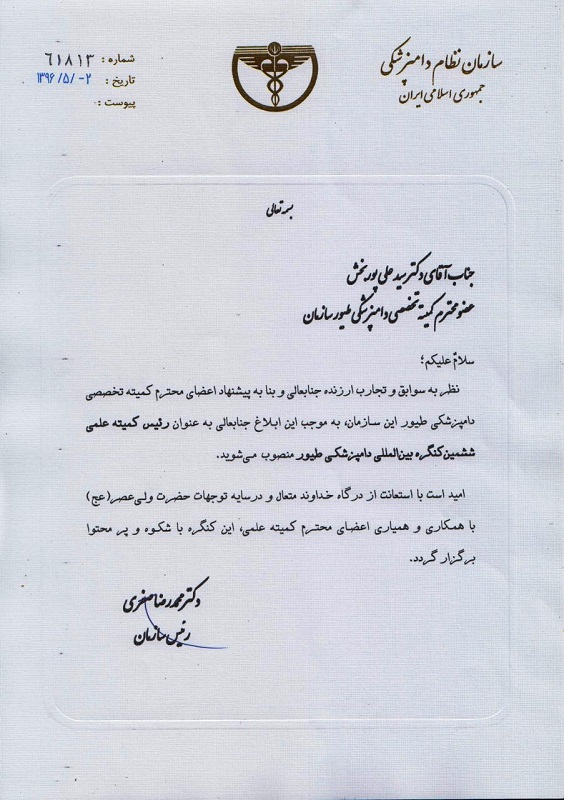 سازمان نظام دامپزشکی
جمهوری اسلامی ایران
شماره : ٦١٨١٣
تاریخ : ١٣٩٦/٥/-٢
پیوست :
بسمه تعالی
جناب آقای دکتر سید علی پوربخش
عضو محترم کمیته تخصصی دامپزشکی طیور سازمان
سلامٌ علیکم؛
نظر به سوابق و تجارب ارزنده جنابعالی و بنا به پیشنهاد اعضای محترم کمیته تخصصی
دامپزشکی طیور این سازمان، به موجب این ابلاغ جنابعالی به عنوان رئیس کمیته علمی
ششمین کنگره بین‌المللی دامپزشکی طیور منصوب می‌شوید.
امید است با استعانت از درگاه خداوند متعال و در سایه توجهات حضرت ولی‌عصر(عج)
با همکاری و همیاری اعضای محترم کمیته علمی، این کنگره با شکوه و پر محتوا
برگزار گردد.
دکتر محمدرضا صفری
رئیس سازمان